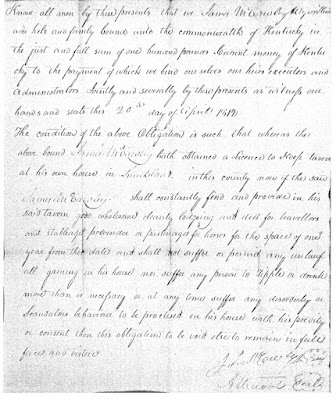 Know all men by these presents that we James
are held and firmly bound unto the commonwealth of Kentucky in
the just and full sum of one hundred pounds Current money of Kentu
cky to the payment of which we bind ourselves our heirs executors and
Administrators Jointly and severally by these presents as witness our
hands and seals this 20th day of April 1812
The conditions of the above Obligation is such that whereas the
above bound James hath obtained a licence to Keep tavern
at his own house in in this county now if the said
James shall constantly find and provide in his
said tavern good wholesome cleanly lodging and diet for travellers
and stableage provender or pasturage for horses for the space of one
year from this date and shall not suffer or permit any unlawf
ull gaming in his house nor suffer any person to tipple or drink
more than is necessary or at any time suffer any disorderly or
scandalous behaviour to be practised in his house with his privity
or consent then this obligation to be void else to remain in full
force and virtue